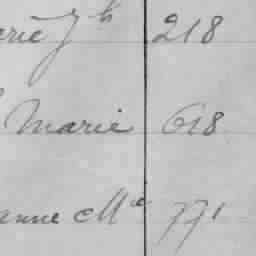 erie Jh 218
Marie 618
anne Mie 771